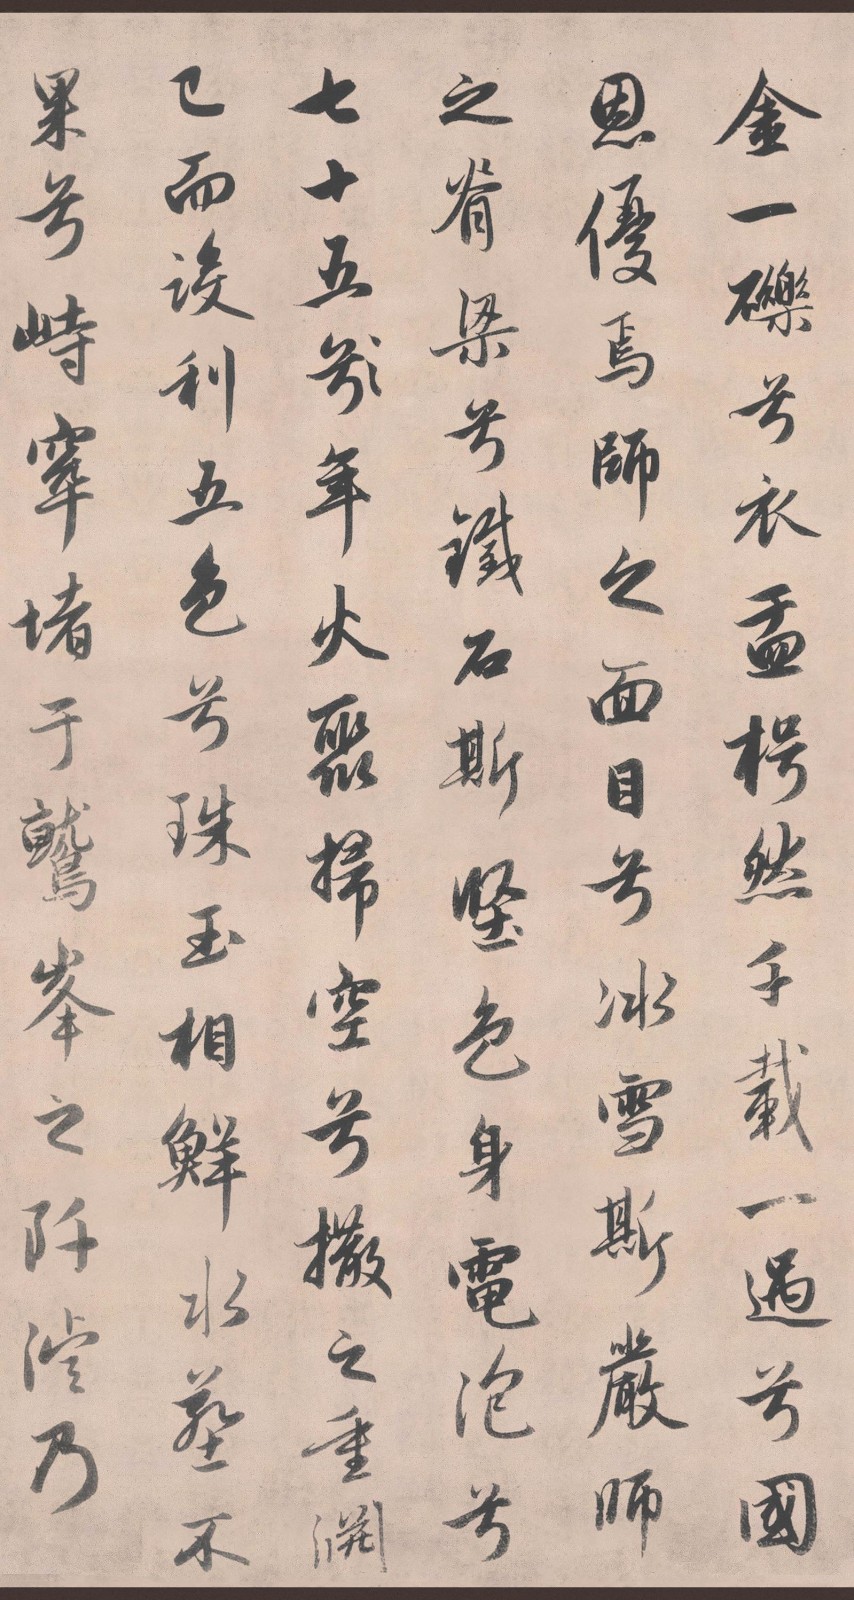 金一礫兮衣盂枵然千載一過兮國
恩優焉師之面目兮冰雪斯嚴師
之脊梁兮鐵石斯堅色身電泡兮
七十五齡年火聚掃空兮撒之重淵
已而設利五色兮珠玉相鮮水葬不
果兮峙窣堵于鷲峯之阡 乃